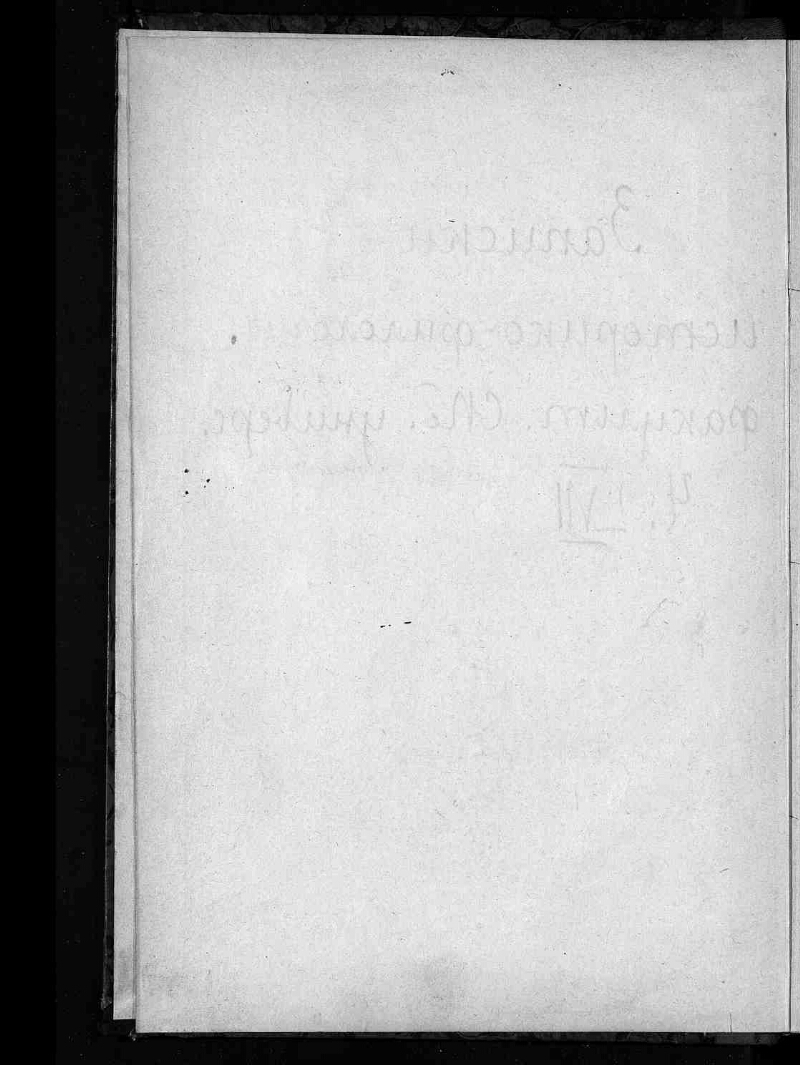 Записки
историко-филол.
факульт. СПб. универс.
Ч. LVII